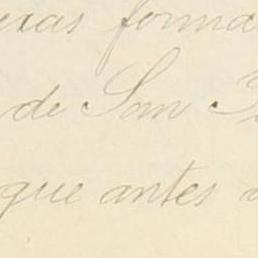 exas forma
de San
que antes